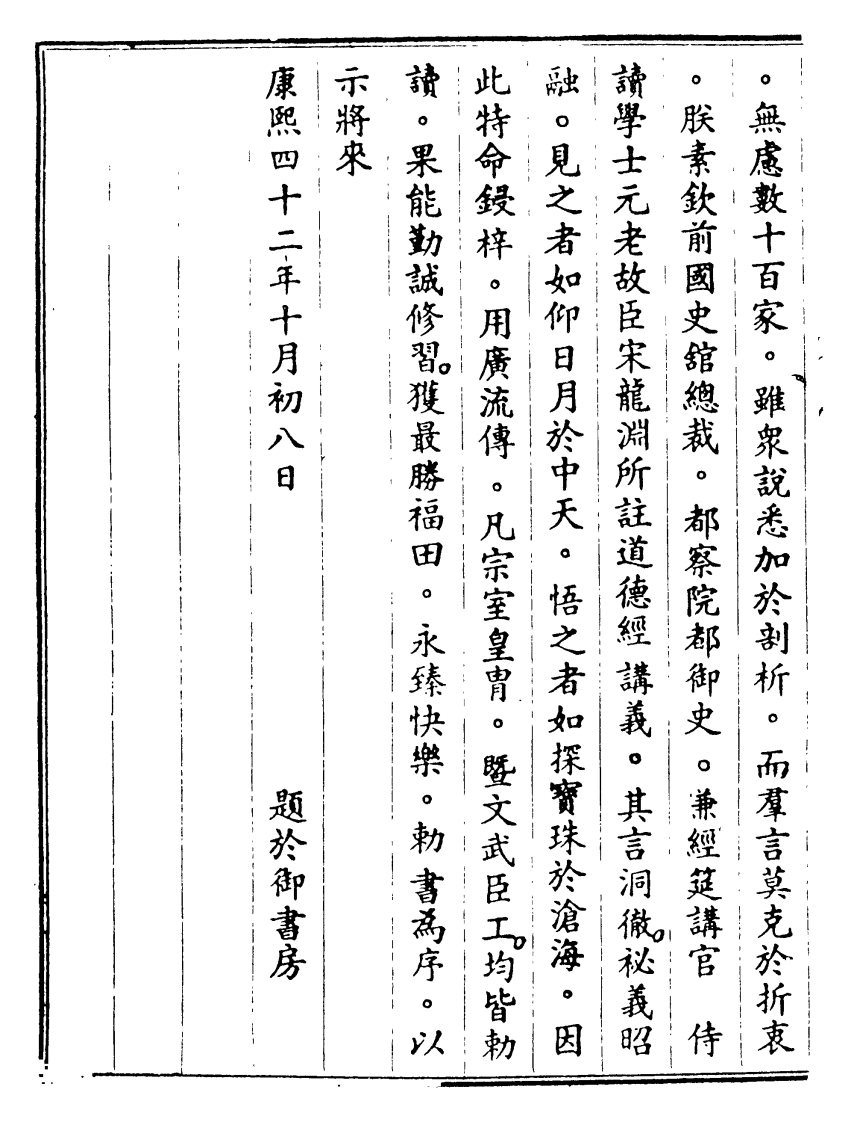 。無慮數十百家。雖衆說悉加於剖析。而羣言莫克於折衷
。朕素欽前國史舘總裁。都察院都御史。兼經筵講官　侍
讀學士元老故臣宋龍淵所註道德經講義。其言洞徹。祕義昭
融。見之者如仰日月於中天。悟之者如探寶珠於滄海。因
此特命鋟梓。用廣流傳。凡宗室皇冑。暨文武臣工。均皆勅
讀。果能勤誠修習。獲最勝福田。永臻快樂。勅書為序。以
示將來
康熙四十二年十月初八日　題於御書房